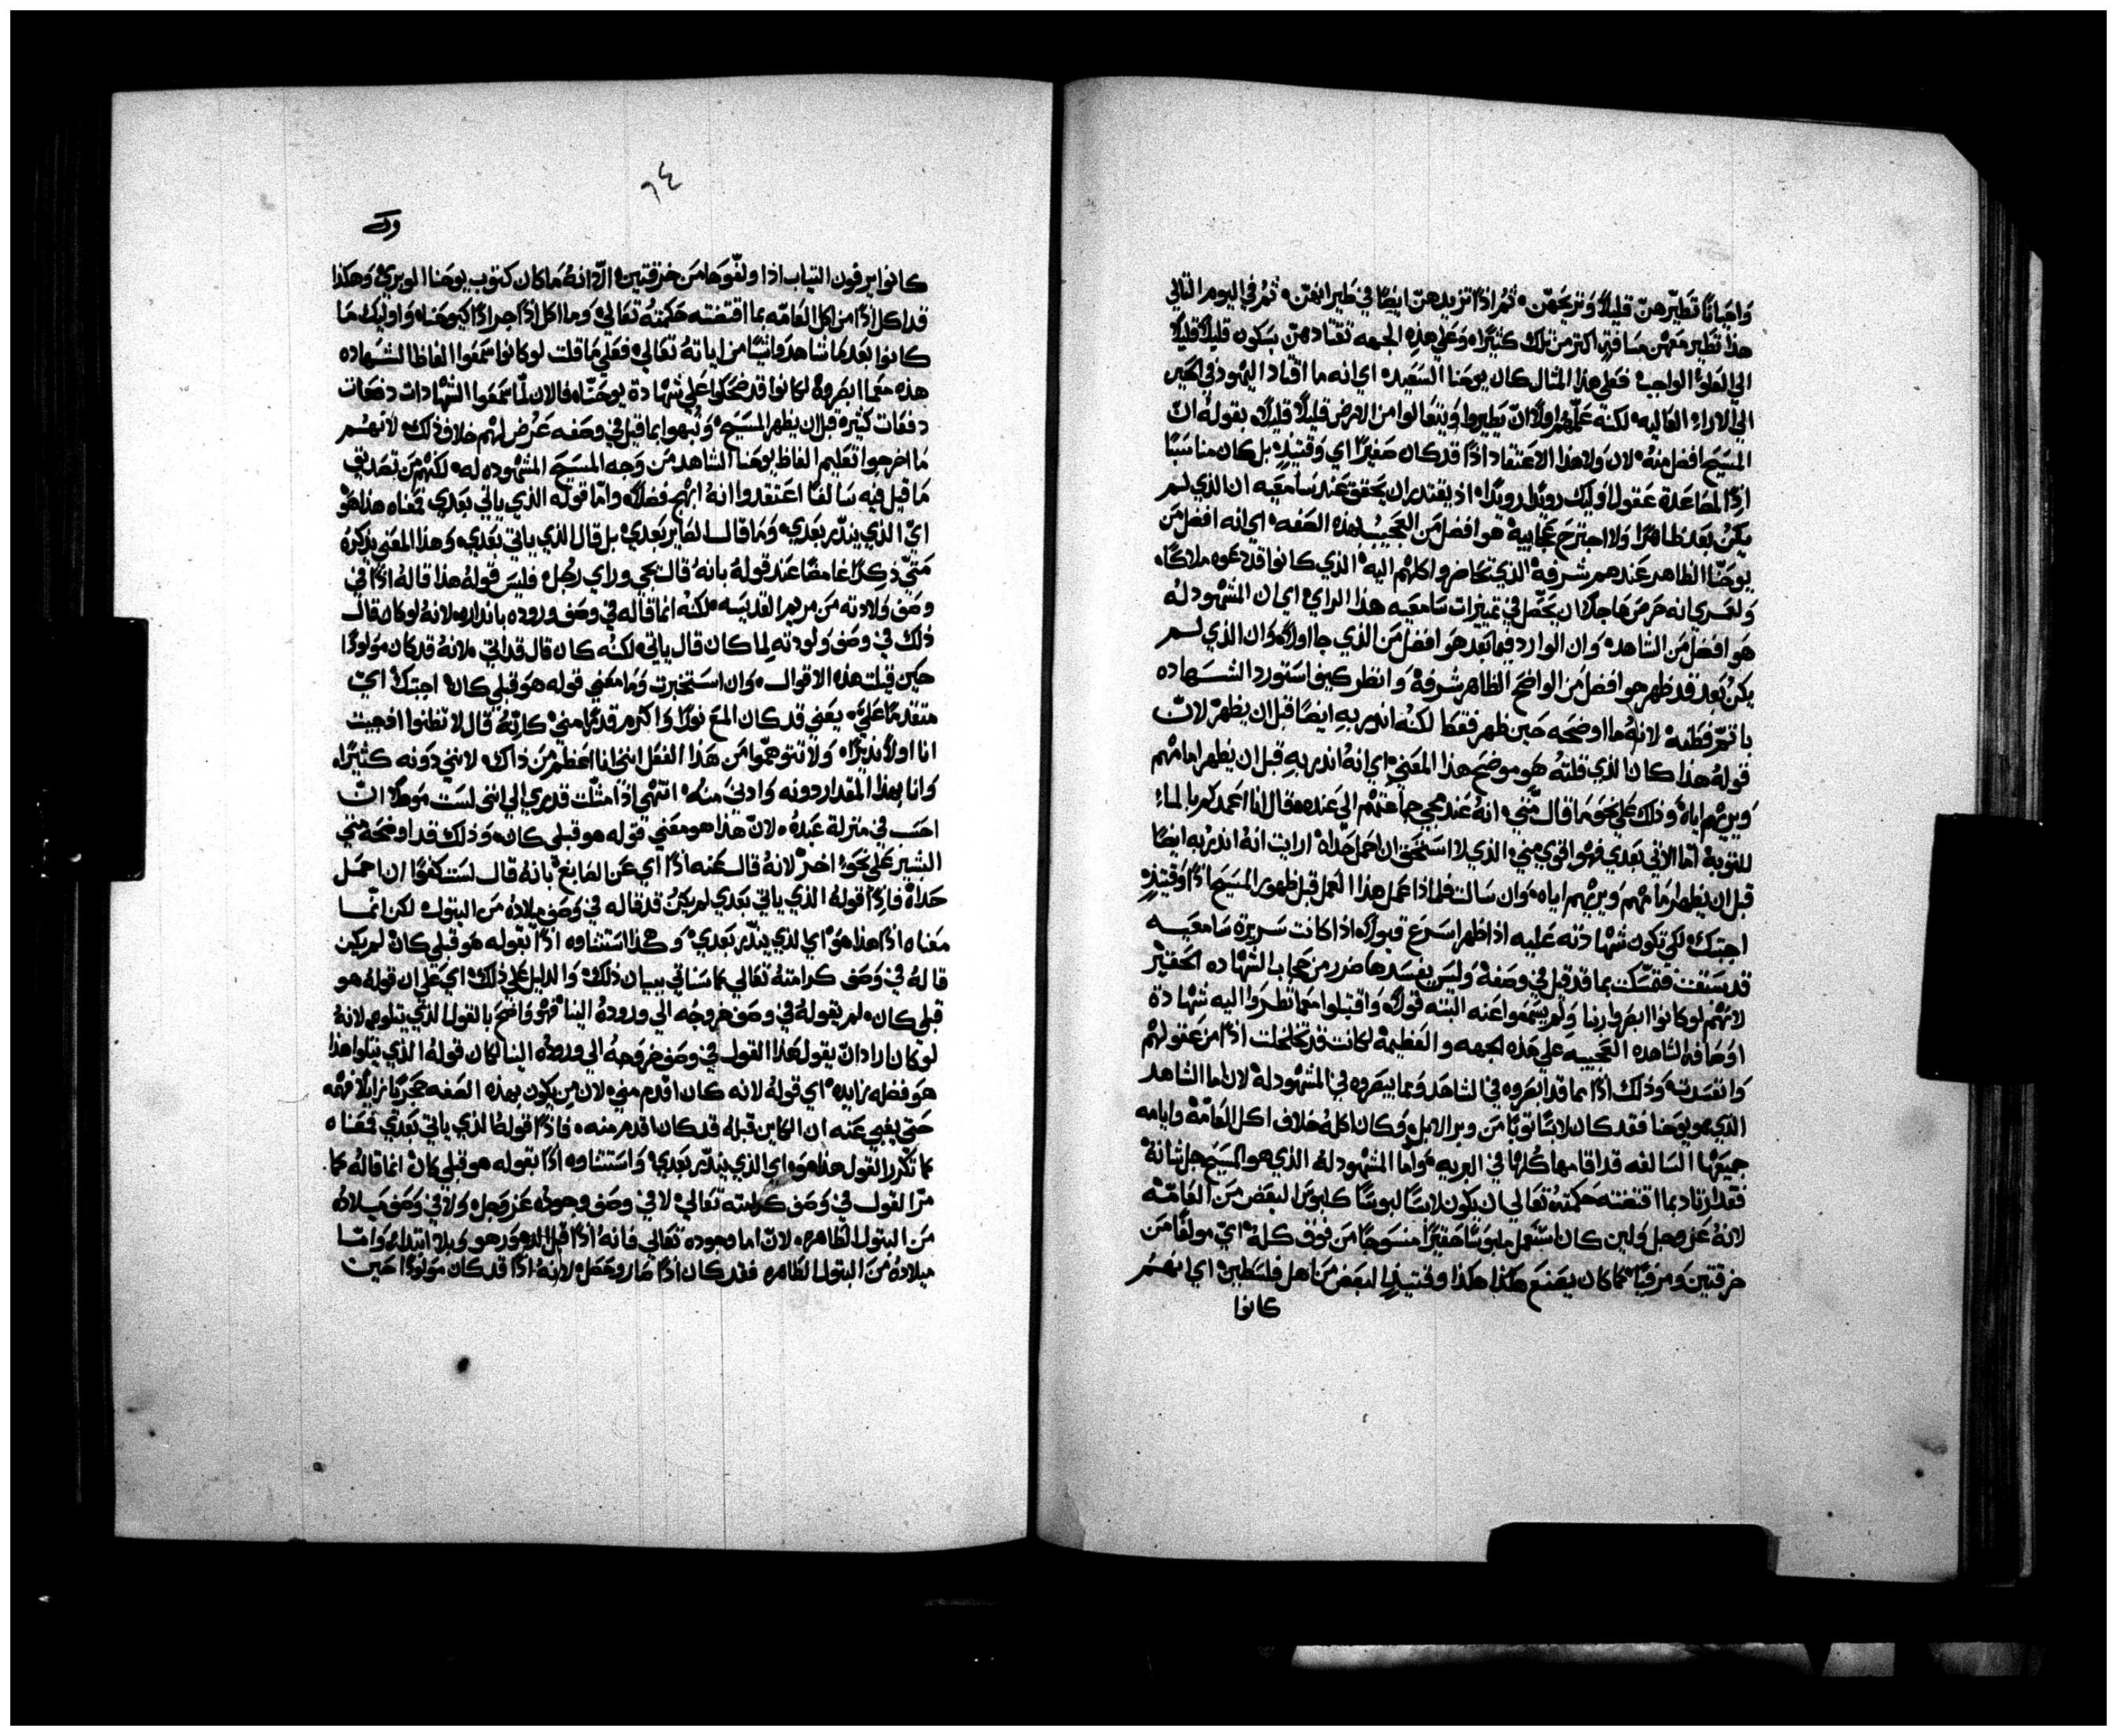 واحيانًا تطيّرهنّ قليلاً وتريحهنّ ثم اذًا تزيدهنّ ايضًا في طيرانهنّ ثم في اليوم التالي
هذا تطير معهنّ مسافةٍ اكثر من تلك كثيرًا وعلي هذه الجهه تقتادهنّ بسكون قليلاً قليلاً
الي العلوّ الواجب فعلي هذا المثال كان يوحنا السعيد اي انه ما اقتاد اليهود في الحين
الي الاراء العاليه لكنه علّمهم اولاً انّ يطيروا ويتعالوا من الارض قليلاً قليلاً بقوله انّ
المسيح افضل منه لان ولا هذا الاعتقاد اذًا قد كان صغيرًا اي وقتيذٍ بل كان مناسبًا
اذًا لمصاعدة عقول اوليك رويدًا رويدًا اذ يقتدر ان يحقق عند سامعيه ان الذي لم
يكنُ بعد ظاهرًا ولا اجترح عجايبهُ هو افضل من العجيب بهذه الصفه اي انه افضل من
يوحنّا الظاهر عندهم شرفهُ الذي تحاضروا كلهم اليه الذي كانوا قد دعوه ملاكًا
ولعمري انه حرص هاجدًا ان يحصّل في تمييزات سامعيه هذا الراي اي ان المشهود لهُ
هو افضل من الشاهد وان الوارد فيما بعد هو افضل من الذي جا اولاً وان الذي لم
يكنُ بعد قد ظهر هو افضل من الواضح الظاهر شرفهُ وانظر كيف استورد الشهاده
باتمّ فطنه لانهُ ما اوضحه حين ظهر فقط لكنهُ انذر بهِ ايضًا قبل ان يظهر لانّ
قوله هذا كان الذي قلتهُ هو موضح هذا المعني اي انهُ انذر بهِ قبل ان يظهر امامهم
ويريهم اياهُ وذلك علي نحو ما قال متّي انهُ عند مجي جماعتهم الي عنده قال انا اعمدكم بالماءِ
للتوبهُ امّا الاتي بعدي فهو اقوي مني الذي لا استحق ان احمل حذاهُ ارايت انهُ انذر به ايضًا
قبل ان يظهر امامهم ويريهم اياه وان سالت فلماذا عمل هذا العمل قبل ظهور المسيح اذًا وقتيذٍ
اجبتك لكي تكون شهادته عليه اذا ظهر اسرع قبولاً اذا كانت سريرة سامعيه
قد سبقت فتمسّكت بما قد قيل في وصفهُ وليس يفسدها ضرر من حجاب الشهاده الحقير
لانهم لو كانوا ابصروا ربنا ولم يسمعوا عنه البته قولاً واقتبلوا معما نظروا اليه شهادة
اوصافه الشاهده العجيبه علي هذه الجهه والعظيمهُ لكانت قد تخلخلت اذًا من عقولهم
وانفسدت وذلك اذًا بما قد ابصروه في الشاهد ومما يبصروه في المشهود لهُ لان اما الشاهد
الذي هو يوحنا فقد كان لابسًا ثوبًا من وبر الابل وكان اكلهُ خلاف اكل العامّة وايامه
جميعها السالفه قد اقامها كلها في البريه واما المشهود لهُ الذي هو المسيح جل ثنانهُ
فقد ارتاد بما اقتضته حكمتهُ تعالي ان يكون لابسًا لبوسًا كلبوس البعض من العامّه
لانهُ عز وجل ولين كان استعمل ملبوسًا حقيرًا منسوجًا من فوق كلهُ اي مولفًا من
خرقتين ومرفيًا كما كان يصنع هكذا هكذا وقتيذٍ البعض من اهل فلسطين اي انهم
كانوا
٦٤
كانوا يرفون الثياب اذا ولّفوها من خرقتين الّا انهُ ما كان كثوب يوحنا الوبري وهكذا
قد اكل اذًا من اكل العامّه بما اقتضته حكمتهُ تعالي وما اكل اذًا جرادًا كيوحنا واوليك ما
كانوا بعد ما شاهدوا شيًا من اياته تعالي فعلي ما قلت لو كانوا سمعوا الفاظ الشهاده
هذه معما ابصروهُ لكانوا قد ضحكوا علي شهادة يوحنّا فالان لمّا سمعوا الشهادات دفعات
دفعات كثيره قبل ان يظهر المسيح ونُبهوا بما قيل في وصفه عَرُض لهم خلاف ذلك لانهم
ما اخرجوا تعليم الفاظ يوحنا الشاهد من وجه المسيح المشهوده له لكنهم من تصديق
ما قيل فيه سالفًا اعتقدوا انهُ ابهم فضلاً وامّا قوله الذي ياتي بعدي فمعناه هذا هوَ
اي الذي ينذر بعدي وما قال الصاير بعدي بل قال الذي ياتي بعدي وهذا المعني يذكرهُ
متيّ ذكرًا غامضًا عند قوله بانهُ قال يجي وراي رجُل فليس قولهُ هذا قالهُ اذًا في
وصف ولادته من مريم القديسه لكنهُ انما قاله في وصف وروده بانذاره لانهُ لو كان قال
ذلك في وصف ولودته لما كان قال ياتي لكنّه كان قال قد اتي لانهُ قد كان مولودًا
حين قيلت هذه الاقوال وان استخبرت وما معني قوله هو قبلي كان اجبتك ايّ
متقدمًا عليَّ يعني قد كان المع نورًا واكرم قدرًا مني كانّهُ قال لا تظنوا اذ جيت
انا اولاً نذيرًا ولا تتوهمّوا من هذا الفعل انني انا اعظم من ذاك لانني دونه كثيرًا
وانا بهذا المقدار دونه وادني منهُ انتهي اذًا مثّلت قدري الي انّي لست موهلاً انّ
احسب في منزلة عبدهُ لانّ هذا هو معني قوله هو قبلي كان وذلك قد اوضحهُ متي
البشير علي نحوٍ اخر لانهُ قال عنه اذًا اي عن الصابغ بانهُ قال لست كفوًا ان احمل
حذاهُ فاذًا قولهُ الذي ياتي بعدي لم يكنُ قد قاله في وصف ميلادهُ من البتول لكن انّما
معناه اذًا هذا هوَ اي الذي ينذر بعدي وهكذا استثناوه اذًا بقوله هو قبلي كان لم يكن
قالهُ في وصف كرامتهُ تعالي كما سياتي بيان ذلك والدليل علي ذلك اي علي ان قولهُ هو
قبلي كان لم يقولهُ في وصف خروجُه الي ورودهُ الينا فهو واضح بالقول الذي يتلوه لانهُ
لو كان اراد انّ يقول هذا القول في وصف خروجهُ الي ورودهُ الينا لكان قولهُ الذي يتلو هذا
هو فضله زايده اي قولهُ لانه كان اقدم مني لان مِن يكون بهذه الصفه حجريًا زايلاً فهمه
حتّي يغبي عنه ان الكاين قبلهُ قد كان اقدم منه فاذًا قوله الذي ياتي بعدي فمعناه
كما تكرر القول هذا هوَ اي الذي ينذر بعدي واستثناوه اذًا بقوله هو قبلي كان انما قالهُ كما
مرّ القول في وصف كرامته تعالي لا في وصف وجودهُ عز وجل ولا في وصف ميلادهُ
من البتول الطاهره لانّ اما وجوده تعالي فانهُ اذًا قبل الدهور هو وبلا ابتداء وامّا
ميلادهُ من البتول الطاهره فقد كان اذًا صار وحصل لانهُ اذًا قد كان مولودًا حين